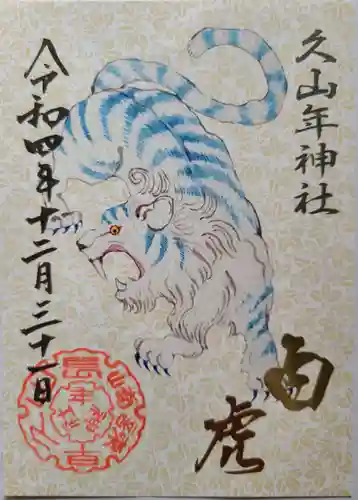 久山年神社
令和四年十二月三十一日
白
虎